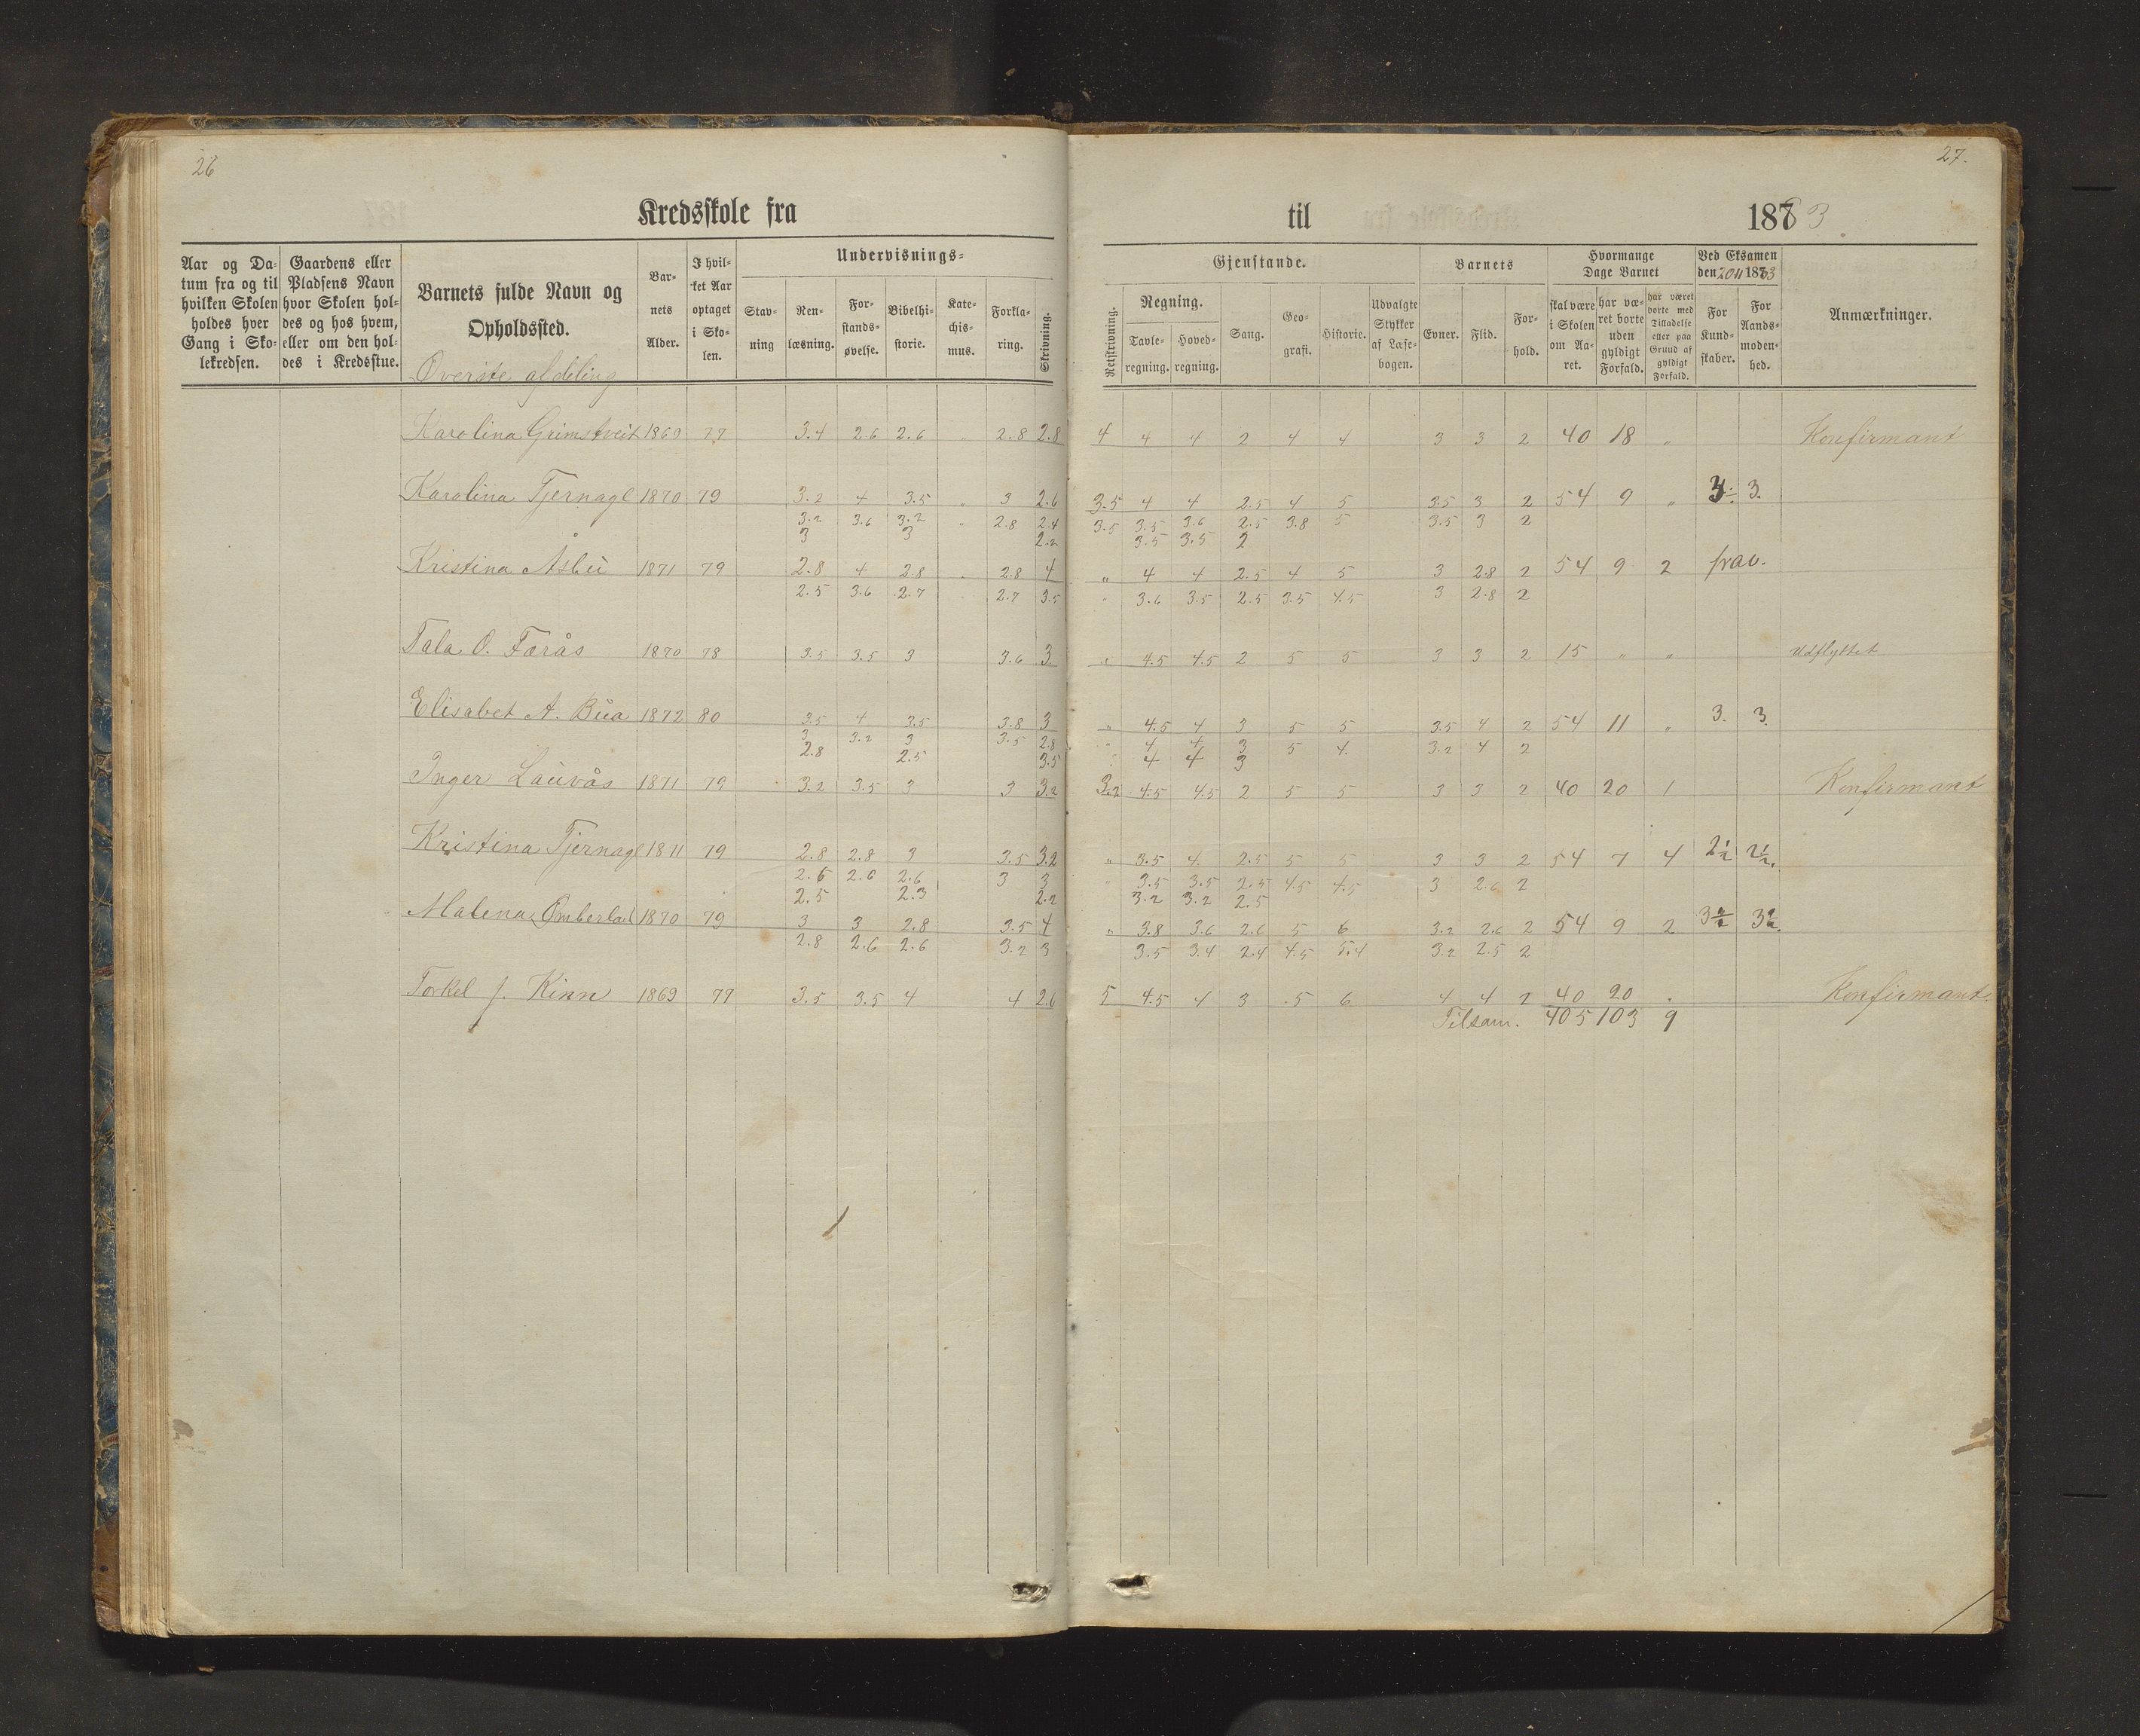 26
27.
Kredsskole fra
til
1883
Aar og Da-
tum fra og til
hvilken Skolen
holdes hver
Gang i Sko-
lekredsen.
Gaardens eller
Pladsens Navn
hvor Skolen hol-
des og hos hvem,
eller om den hol-
des i Kredsstue.
Barnets fulde Navn og
Opholdssted.
Bar-
nets
Alder.
I hvil-
ket Aar
optaget
i Sko-
len.
Undervisnings-
Stav-
ning
Ren-
læsning.
For-
stands-
øvelse.
Bibelhi-
storie.
Kate-
chis-
mus.
Forkla-
ring.
Skrivning.
Gjenstande.
Retskrivning.
Regning.
Tavle-
regning.
Hoved-
regning.
Sang.
Geo-
grafi.
Historie.
Udvalgte
Stykker
af Læse-
bogen.
Barnets
Evner.
Flid.
For-
hold.
Hvormange
Dage Barnet
skal være
i Skolen
om Aa-
ret.
har væ-
ret borte
uden
gyldigt
Forfald.
har været
borte med
Tilladelse
eller paa
Grund af
gyldigt
Forfald.
Ved Eksamen
den 20/11 1883
For
Kund-
skaber.
For
Aands-
moden-
hed.
Anmærkninger.
Øverste afdeling
Karolina Grimstveit 1869 77 3.4 2.6 2.6 " 2.8 2.8 4 4 4 2 4 4 3 3 2 40 18 " Konfirmant
Karolina Tjernagl 1870 79 3.2 4 3.5 " 3 2.6 3.5 4 4 2.5 4 5 3.5 3 2 54 9 " 3. 3.
3.2 3.6 3.2 " 2.8 2.4 3.5 3.5 3.6 2.5 3.8 5 3.5 3 2
3 3 2.2 3.5 3.5 2
Kristina Åsbu 1871 79 2.8 4 2.8 " 2.8 4 " 4 4 2.5 4 5 3 2.8 2 54 9 2 frav.
2.5 3.6 2.7 " 2.7 3.5 " 3.6 3.5 2.5 3.5 4.5 3 2.8 2
Tala O. Førås 1870 78 3.5 3.5 3 3.6 3 " 4.5 4.5 2 5 5 3 3 2 15 " " Udflyttet
Elisabet A. Bua 1872 80 3.5 4 3.5 3.8 3 " 4.5 4 3 5 5 3.5 4 2 54 11 " 3. 3
3 3.2 3 3.5 2.8 " 4 4 3 5 4. 3.2 4 2
2.8 2.5 3.5 " 4 4 3
Inger Lauvås 1871 79 3.2 3.5 3 3 3.2 3.2 4.5 4.5 2 5 5 3 3 2 40 20 1 Konfirmant
Kristina Tjernagl 1871 79 2.8 2.8 3 3.5 3.2 " 3.5 4 2.5 5 5 3 3 2 54 7 4 2½ 2½.
2.6 2.6 2.6 3 3 " 3.5 3.5 2.5 4.5 4.5 3 2.6 2
2.5 2.3 2.2 3.2 3.2 2.5
Malena 1870 79 3 3 2.8 3.5 4 " 3.8 3.6 2.6 5 6 3.2 2.6 2 54 9 2 3½ 3½.
2.8 2.6 2.6 3.2 3 3.5 3.4 2.4 4.5 5.4 3.2 2.5 2
Torkel J. Kinn 1869 79 3.5 3.5 4 4 2.6 5 4.5 4 3 5 6 4 4 2 40 20 " Konfirmant.
Tilsam. 405 103 9